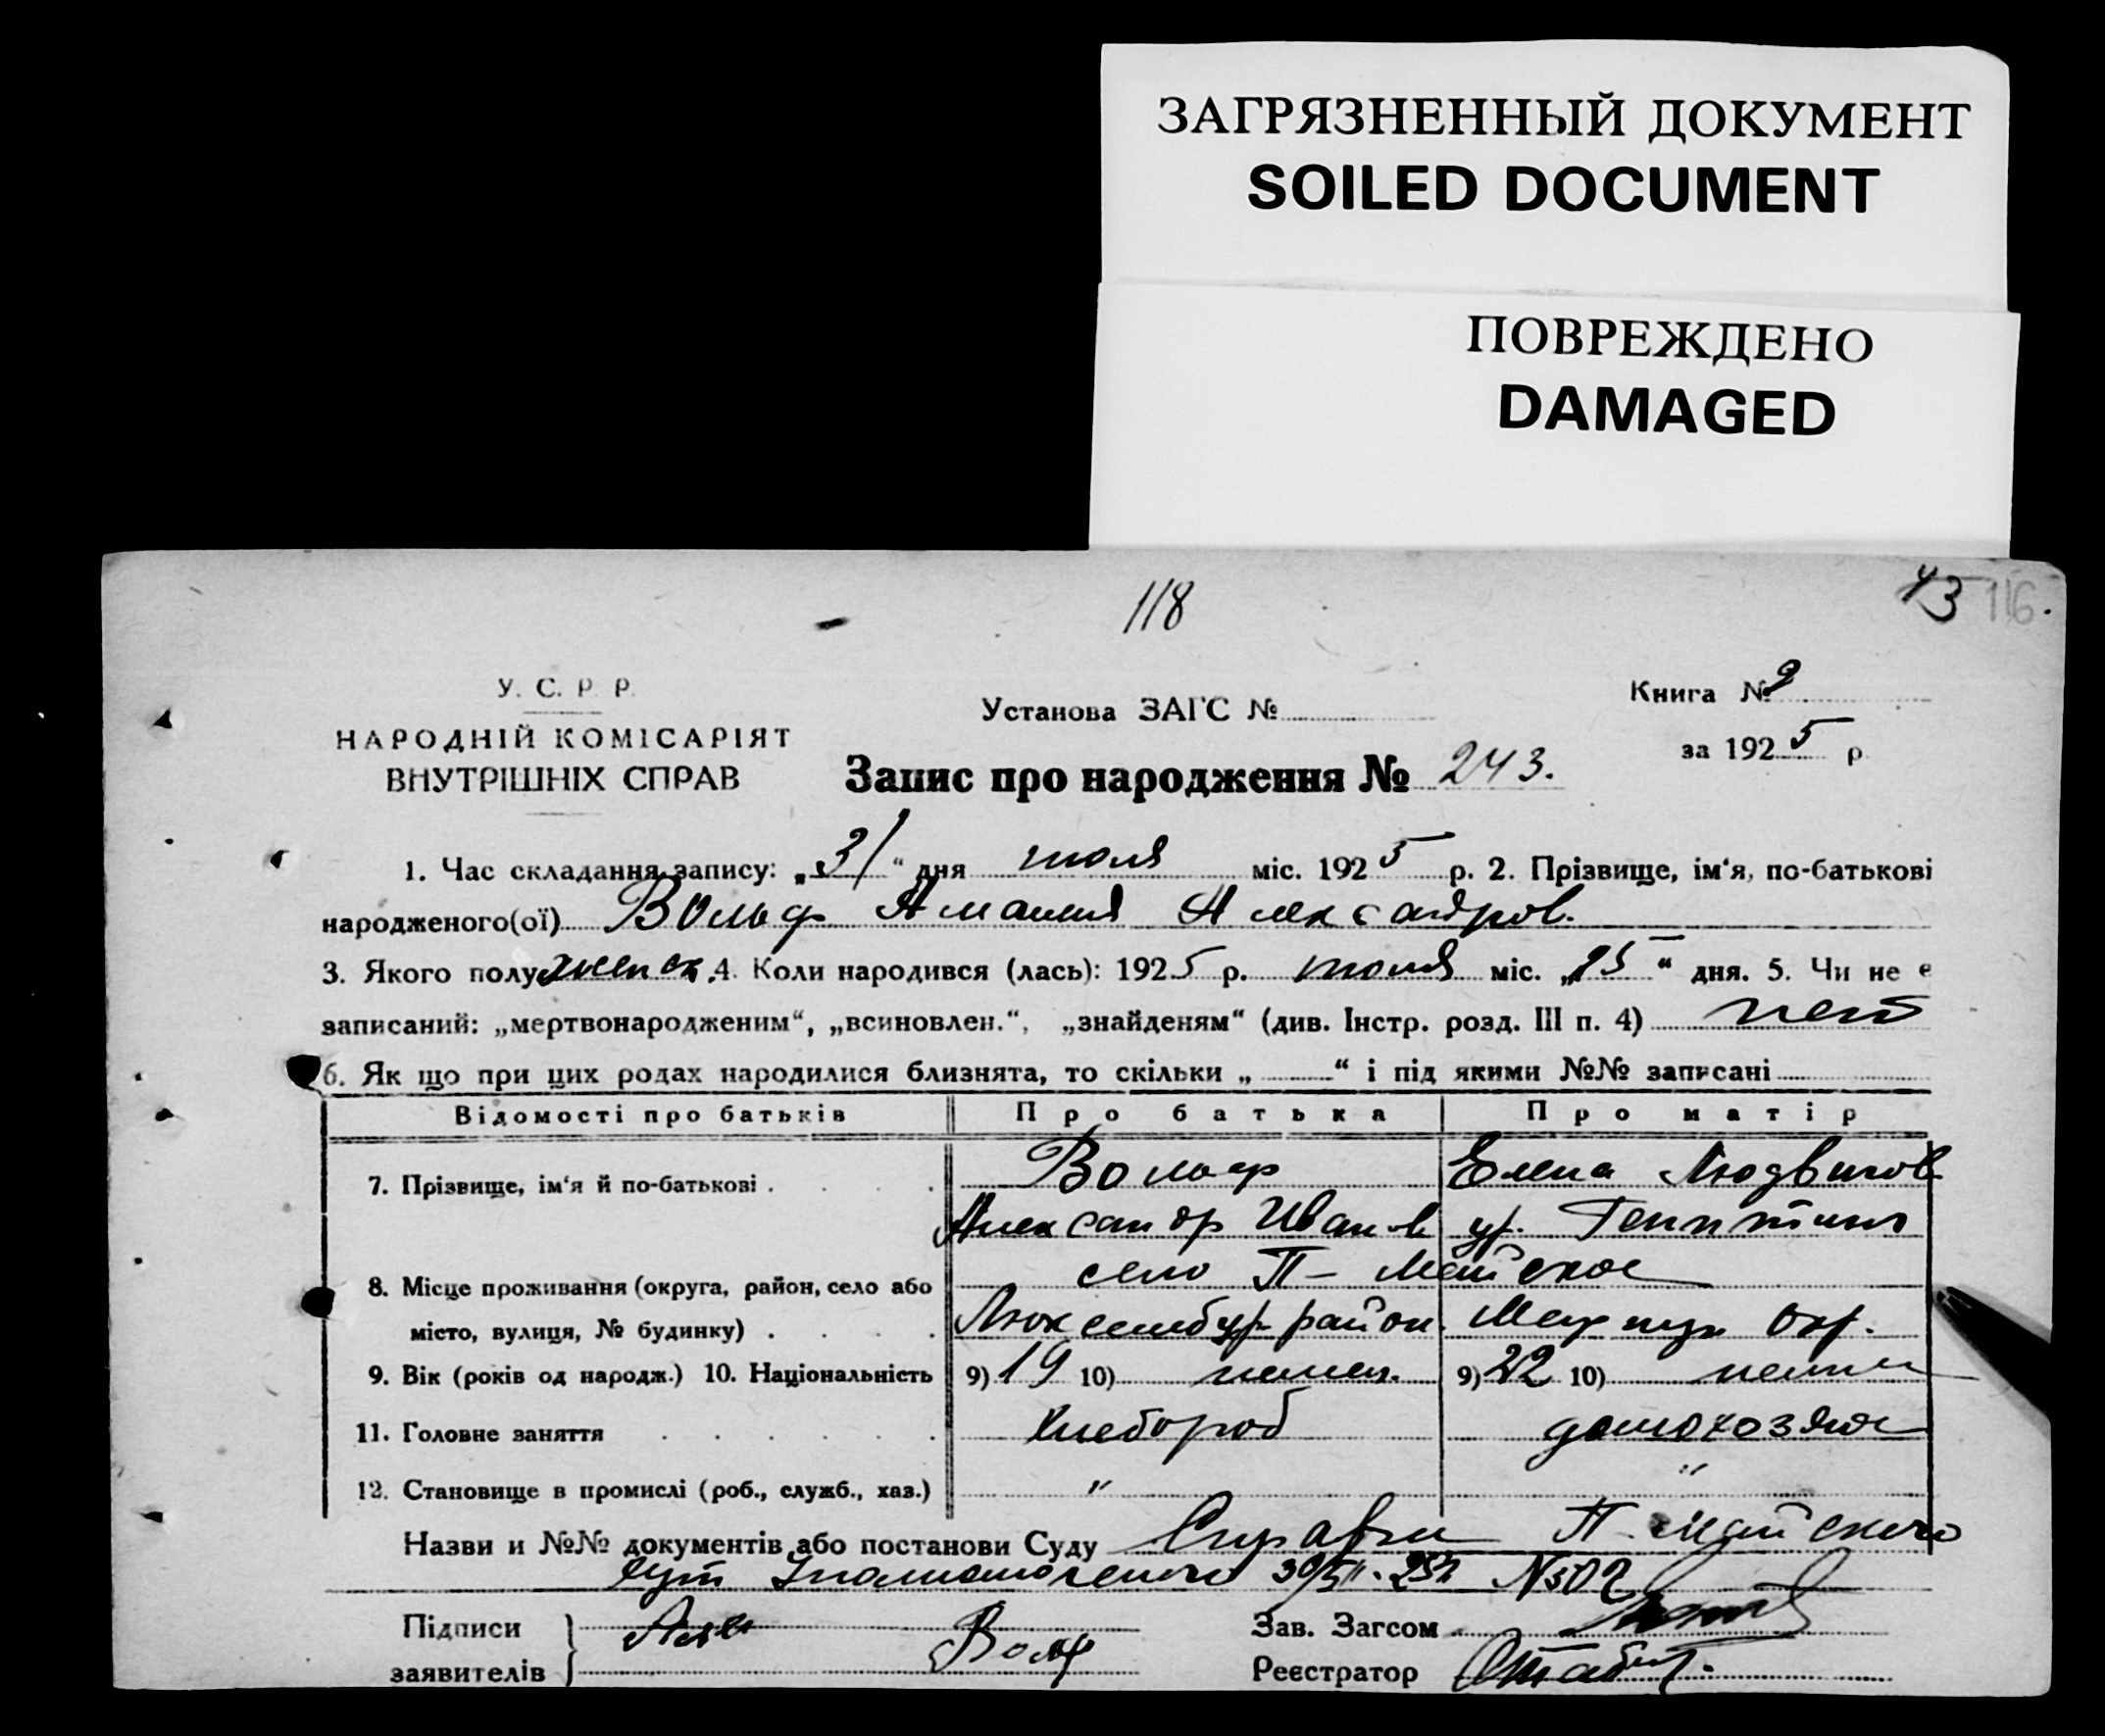 ЗАГРЯЗНЕННЫЙ ДОКУМЕНТ
SOILED DOCUMENT
ПОВРЕЖДЕНО
DAMAGED
118
43 116.
У. С. Р. Р.
НАРОДНІЙ КОМІСАРІЯТ
ВНУТРІШНІХ СПРАВ
Установа ЗАГС №
Книга № 2
за 1925 р.
Запис про народження № 243.
1. Час складання запису: „31“ дня июля міс. 1925 р. 2. Прізвище, ім'я, по-батькові
народженого(ої) Вольф Амалия Александров.
3. Якого полу женск. 4. Коли народився (лась): 1925 р. июля міс. „15“ дня. 5. Чи не є
записаний: „мертвонародженим“, „всиновлен.“, „знайденям“ (див. Інстр. розд. III п. 4) нет
6. Як що при цих родах народилися близнята, то скільки „ “ і під якими №№ записані
Відомості про батьків Про батька Про матір
7. Прізвище, ім'я й по-батькові . Вольф Елена Людвигов
Александр Иванов ур.
село П-Майское
8. Місце проживання (округа, район, село або
місто, вулиця, № будинку) . Люксембур район. Окр.
9. Вік (років од народж.) 10. Національність 9) 19 10) немец. 9) 22 10) немк
11. Головне заняття хлебороб домохозяйк
12. Становище в промислі (роб., служб., хаз.) " "
Назви и №№ документів або постанови Суду Справки П-Майского
№502
Підписи
заявителів Вольф
Зав. Загсом
Реєстратор